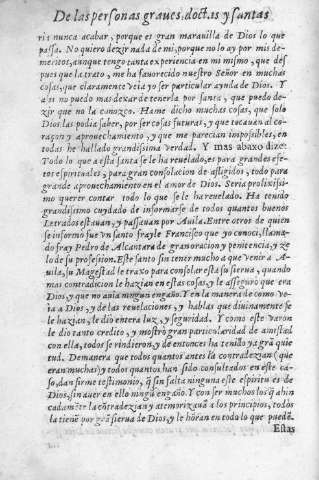 De las personas graues, doctas y santas
ria nunca acabar, porque es gran marauilla de Dios lo que
passa. No quiero dezir nada de mi, porque no lo ay por mis de-
meritos, aunque tengo tanta experiencia en mi mismo, que des
pues que la trato, me ha fauorecido nuestro Señor en muchas
cosas, que claramente veia yo ser particular ayuda de Dios. Y
assi no puedo mas dexar de tenerla por santa, que puedo de-
zir que no la conozco. Hame dicho muchas cosas, que solo
Dios las podia saber, por ser cosas futuras, y que tocauan al co-
raçon y aprouechamiento, y que me parecian impossibles, en
todas he hallado grandissima verdad. Y mas abaxo dize:
Todo lo que a esta santa se le ha reuelado, es para grandes efe-
tos espirituales, para gran consolacion de afligidos, todo para
grande aprouechamiento en el amor de Dios. Seria prolixissi-
mo querer contar todo lo que se le ha reuelado. Ha tenido
grandissimo cuydado de informarse de todos quantos buenos
Letrados estauan, y passauan por Auila. Entre otros de quien
se informò fue vn santo frayle Francisco que yo conoci, llama-
do fray Pedro de Alcantara de gran oracion y penitencia, y ze
lo de su professión. Este santo sin tener mucho a que venir a A-
uila, su Magestad le traxo para consolar esta su sierua, quando
mas contradicion le hazian en estas cosas, y le asseguró que era
Dios, y que no auia ningun engaño. Y en la manera de como ve-
ia a Dios, y de las reuelaciones, y hablas que diuinamente se
le hazian, le dio entera luz, y seguridad. Y como este varon
le dio tanto credito, y mostrò gran particularidad de amistad
con ella, todos se rindieron, y de entonces ha tenido ya grã quie
tud. De manera que todos quantos antes la contradezian (que
eran muchas) y todos quantos han sido consultados en este ca-
so, dan firme testimonio, q̃ sin falta ninguna este espiritu es de
Dios, sin auer en ello ningũ engaño. Y con ser muchos los q̃ ahin
cadamẽte la cõtradezian y atemorizauã a los principios, todos
la tienẽ por grã sierua de Dios, y le hõran en todo lo que puedẽ.
Estas